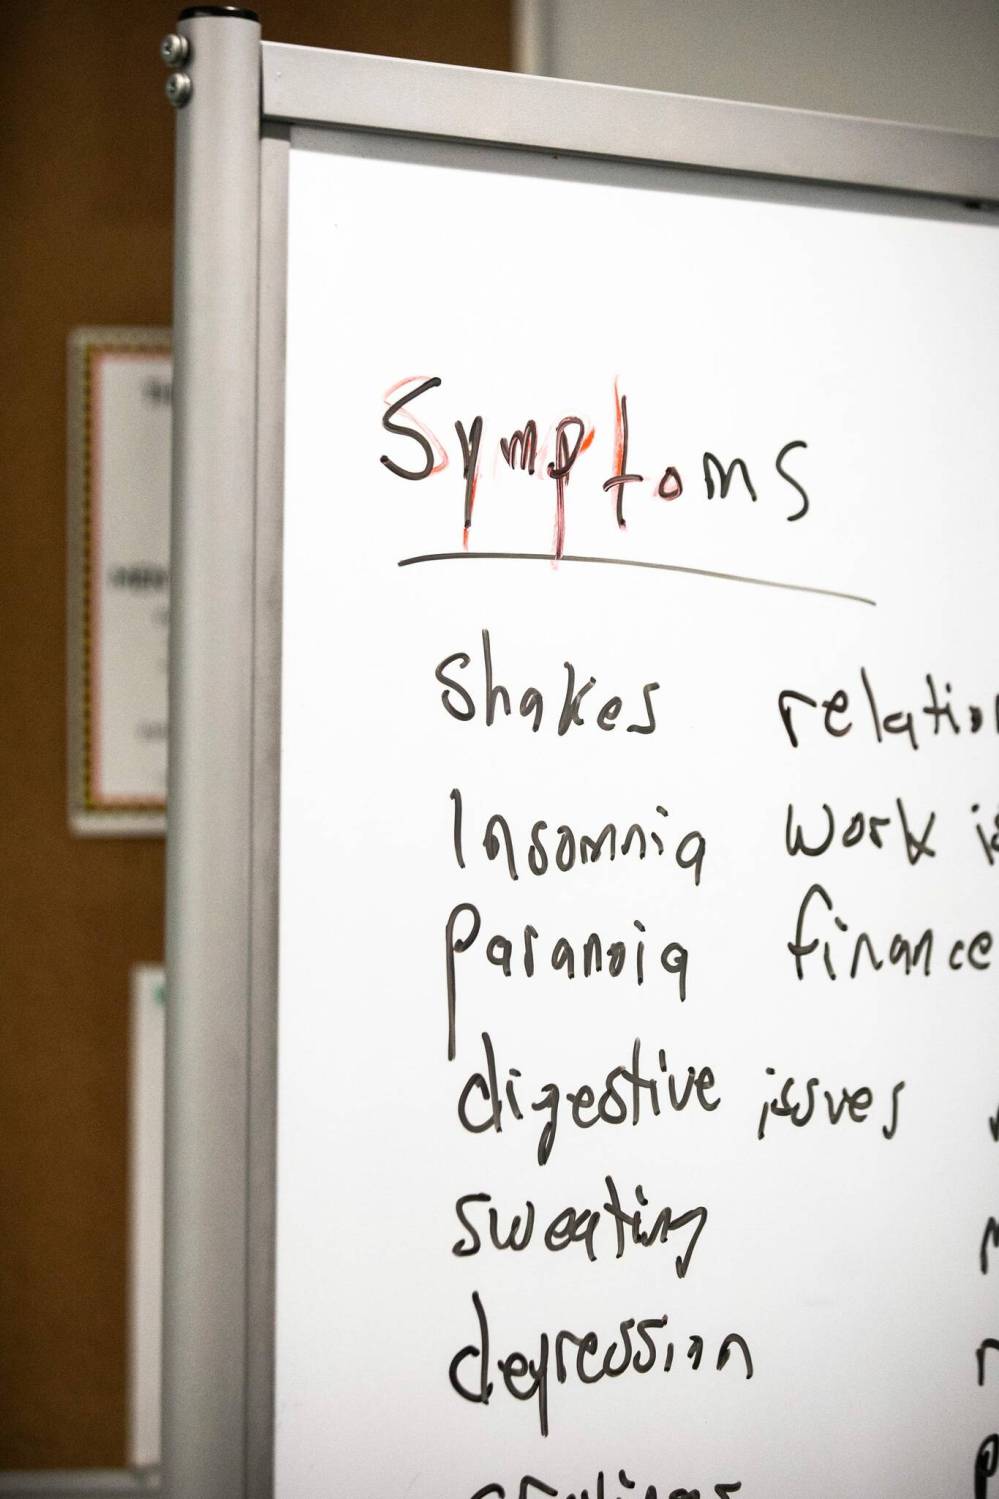 Symptoms
Shakes relation
Insomnia work is
paranoia finance
digestive issues
sweating
depression